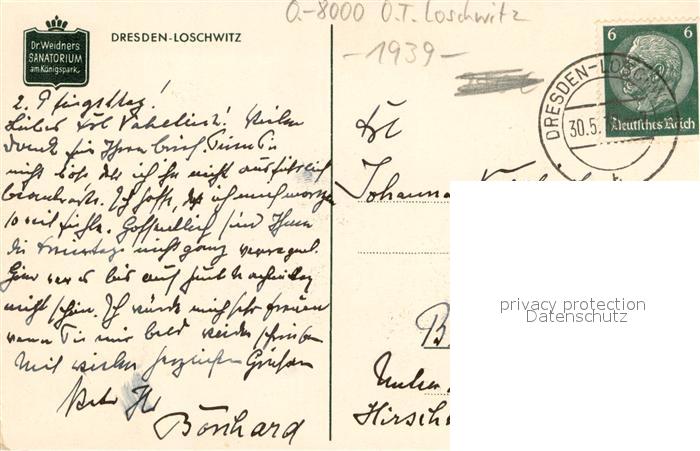 O.-8000 O.T. Loschwitz
-1939-
Dr. Weidners
SANATORIUM
am Königspark
DRESDEN-LOSCHWITZ
6 6
Deutsches Reich
DRESDEN-LOSCHWITZ
30.5.
2. Pfingsttag!
Liebes Frl. Vielen
Dank für Ihren Brief. Seien Sie
nicht böse daß ich ihn nicht ausführlich
beantworte. Ich hoffe, daß ich mich morgen
so viel fühle. Hoffentlich sind Ihnen
die Feiertage nicht ganz verregnet.
Hier war es bis auf heut Nachmittag
nicht schön. Ich würde mich sehr freuen
wenn Sie mir bald wieder schreiben
Mit vielen herzlichen Grüßen
Ihr
Frl
Johanna
B
Unter
Hirsch
privacy protection
Datenschutz